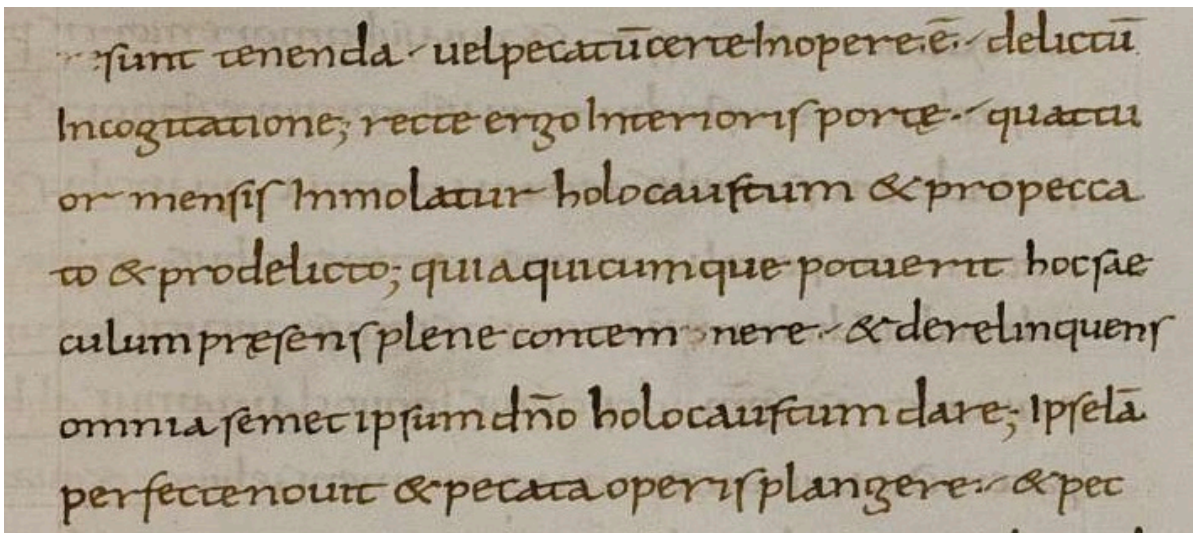 sunt tenenda uel pecatū certe In opere .ē. delictū
Incogitatione; recte ergo Interioris portę quattu
or mensis Inmolatur holocaustum & propecca
to & prodelicto; quia quicumque potuerit hoc sae
culum pręsens plene contem nere & derelinquens
omnia semet ipsum dño holocaustum dare; Ipse Iā
perfecte nouit & pecata operis plangere & pec